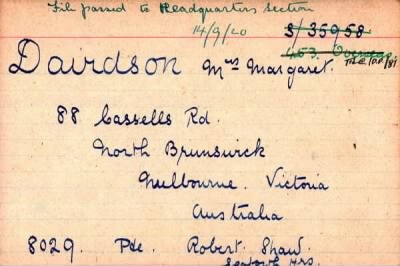 File passed to Headquarters section
14/9/20 S/35958
453. Overseas
Davidson Mrs Margaret.
88 Cassells Rd.
North Brunswick
Melbourne. Victoria
Australia
8029. Pte. Robert Shaw.
Seaforth Hrs.